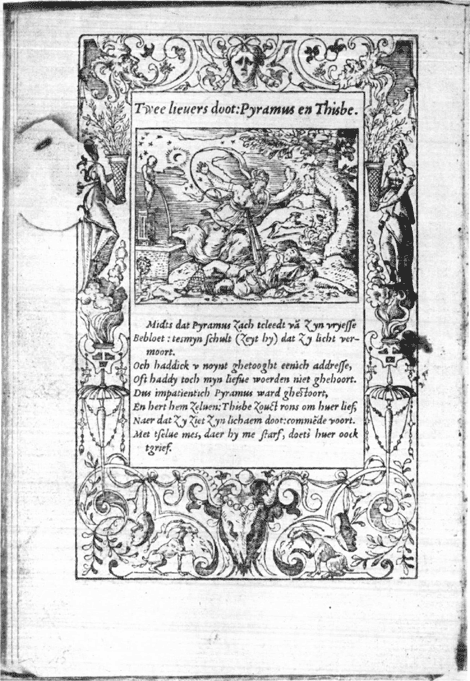 Twee lieuers doot: Pyramus en Thisbe.
Midts dat Pyramus zach tcleedt vā zyn vryesse
Bebloet: tesmyn schult (zeyt hy) dat zy licht ver-
moort.
Och haddick v noynt ghetooght eenich addresse,
Oft haddy toch myn liefue woerden niet ghehoort.
Dus impatientich Pyramus ward ghestoort,
En hert hem zeluen: Thisbe zouct rons om huer lief,
Naer dat zy ziet zyn lichaem doot: commēde voort.
Met tselue mes, daer hy me starf, doets huer oock
tgrief.